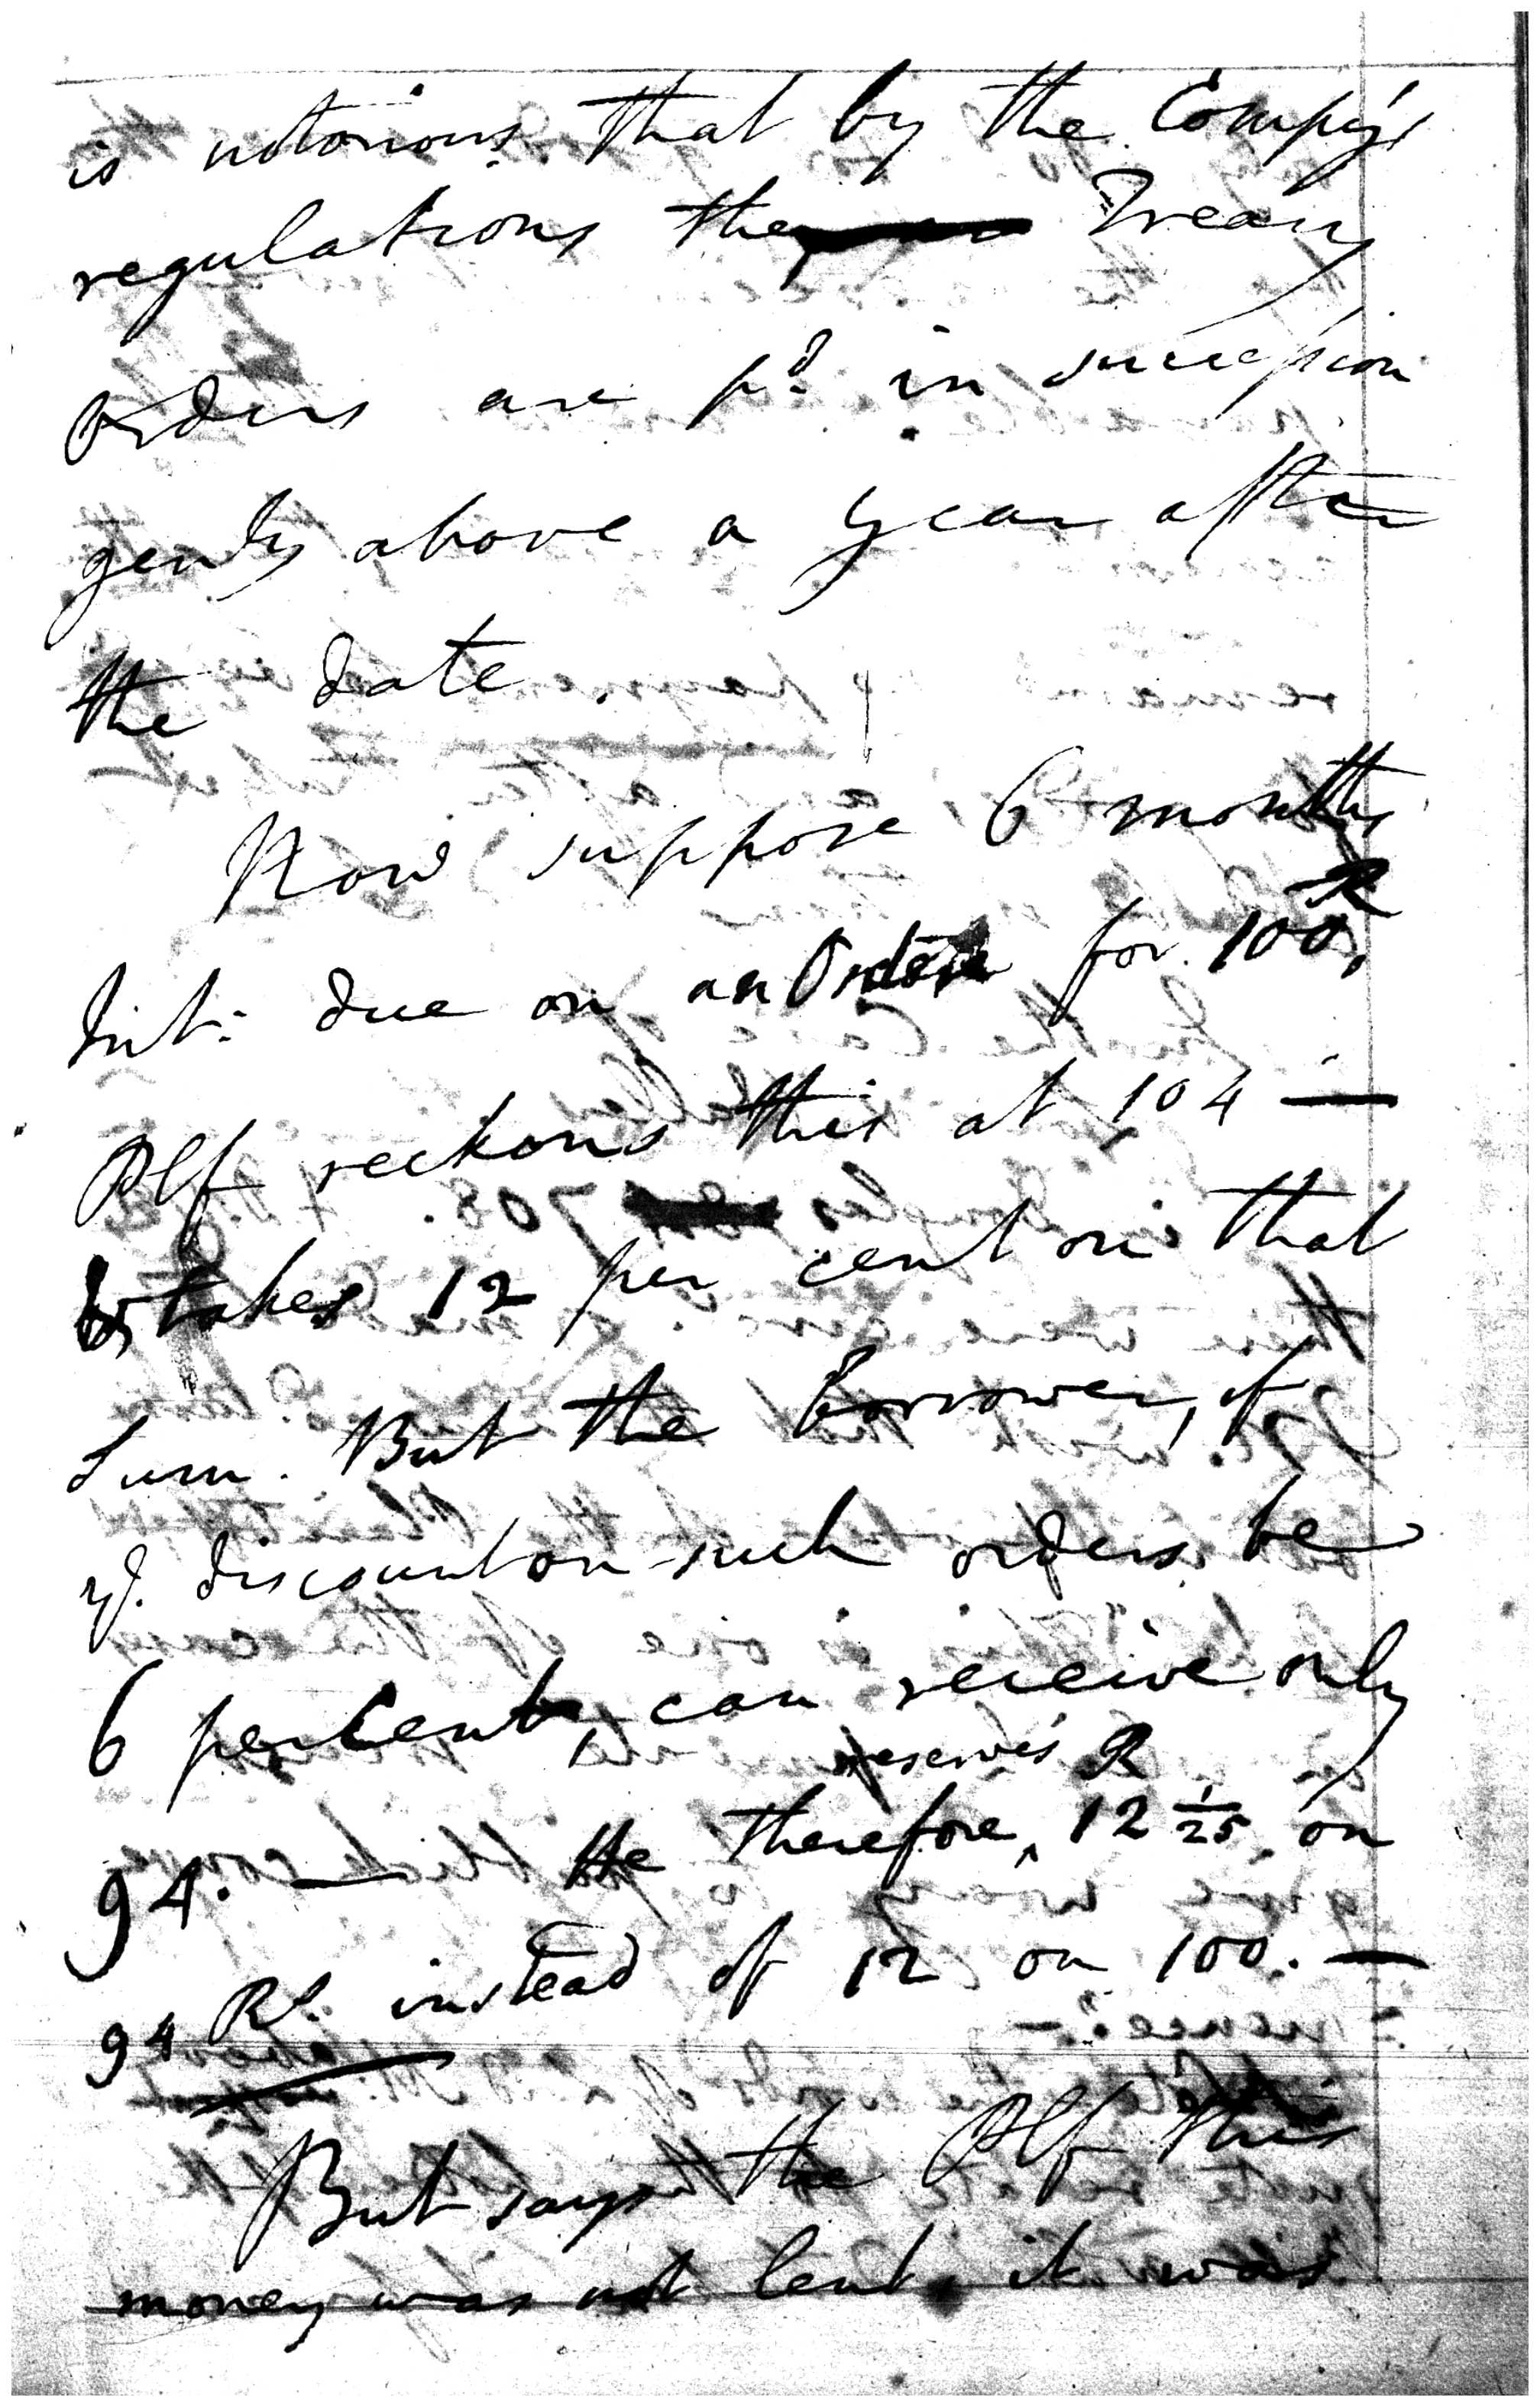 is notorious that by the Compy's
regulations the Treasy
Orders are pd. in succession
genly above a year after
the date.
Now suppose 6 months
Int: due on an Order for 100 R,
Plf reckons this at 104 —
& takes 12 per cent on that
Sum. But the Borrower, if
ye. discount on such orders be
6 per Cent, can receive only
94. — He therefore, reserves R 12 1/25 on
94 Rs. instead of 12 on 100. —
But says the Plf this
money was not lent, it was